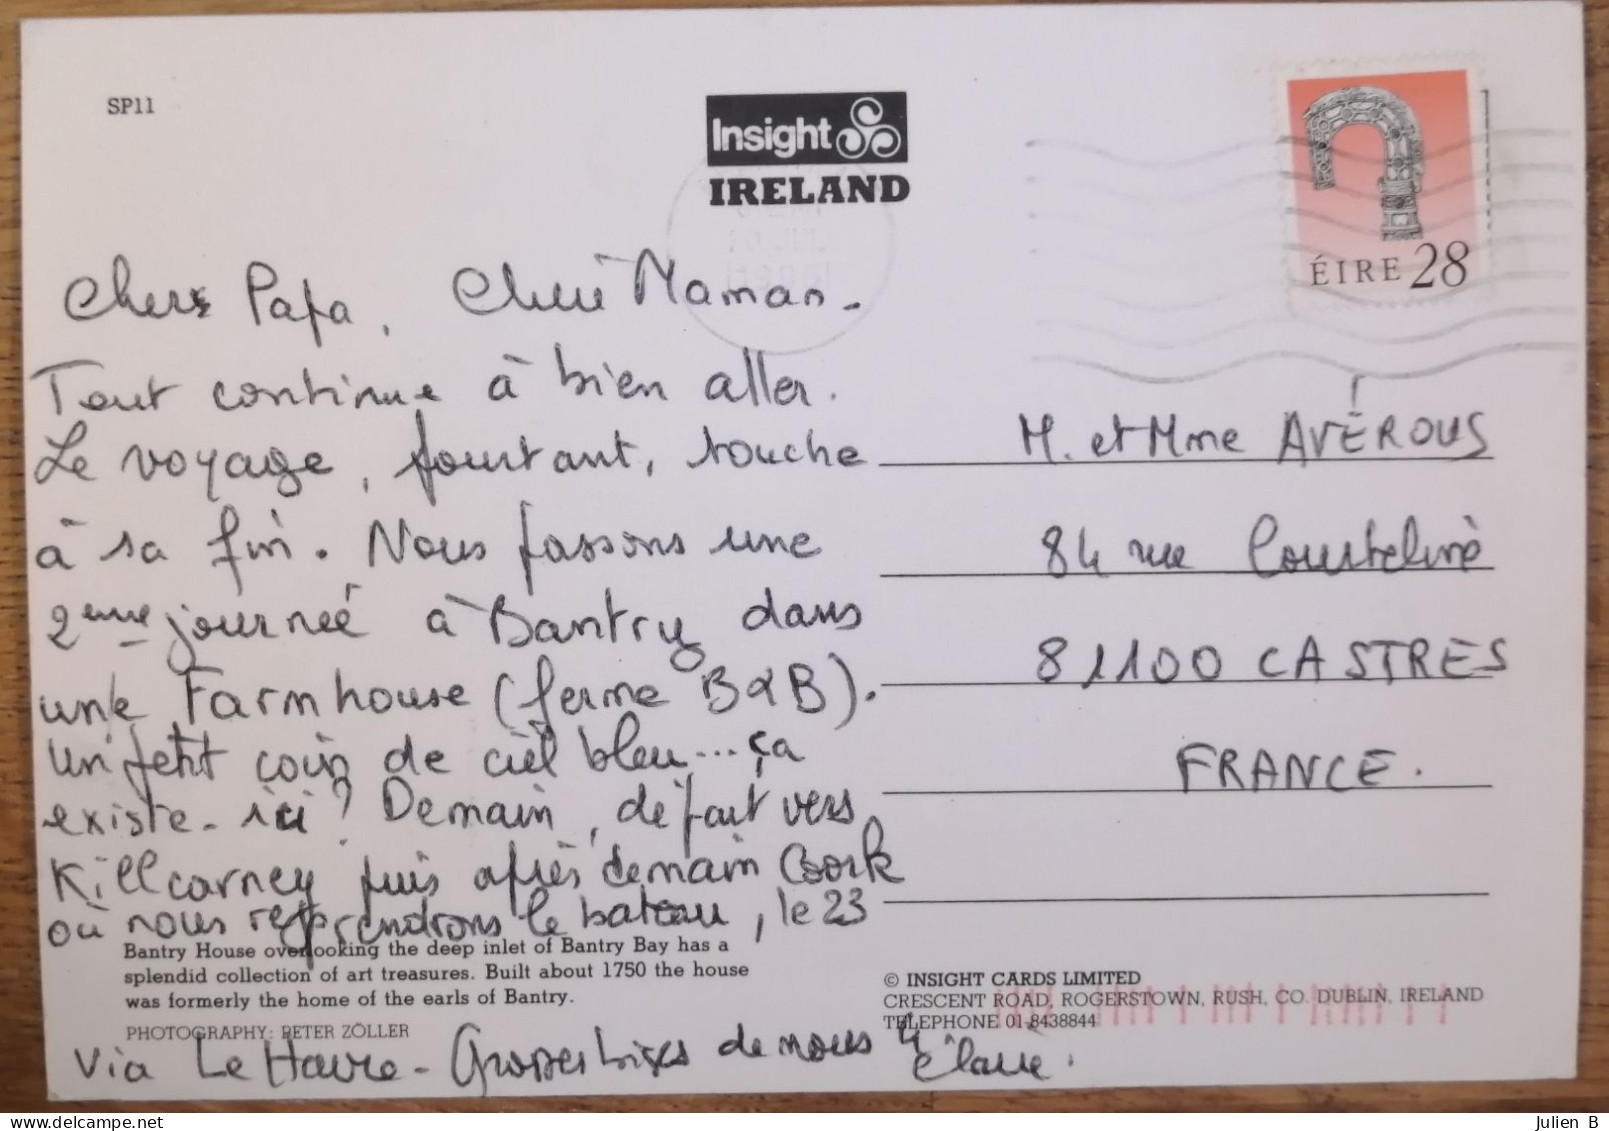 SP11
Insight
IRELAND
ÉIRE 28
Chers Papa, Chère Maman.
Tout continue à bien aller.
Le voyage, pourtant, touche
à sa fin. Nous passons une
2ème journée à Bantry dans
une Farmhouse (ferme B&B).
Un petit coin de ciel bleu... ça
existe-ici? Demain, départ vers
Killcarney puis après demain Coork
où nous reprendrons le bateau, le 23
via Le Havre - Grosses bises de nous 4
Claire.
M. et Mme AVÉROUS
84 rue Courteline
81100 CASTRES
FRANCE.
Bantry House overlooking the deep inlet of Bantry Bay has a
splendid collection of art treasures. Built about 1750 the house
was formerly the home of the earls of Bantry.
PHOTOGRAPHY: PETER ZÖLLER
© INSIGHT CARDS LIMITED
CRESCENT ROAD, ROGERSTOWN, RUSH, CO. DUBLIN, IRELAND
TELEPHONE 01-8438844
Julien B